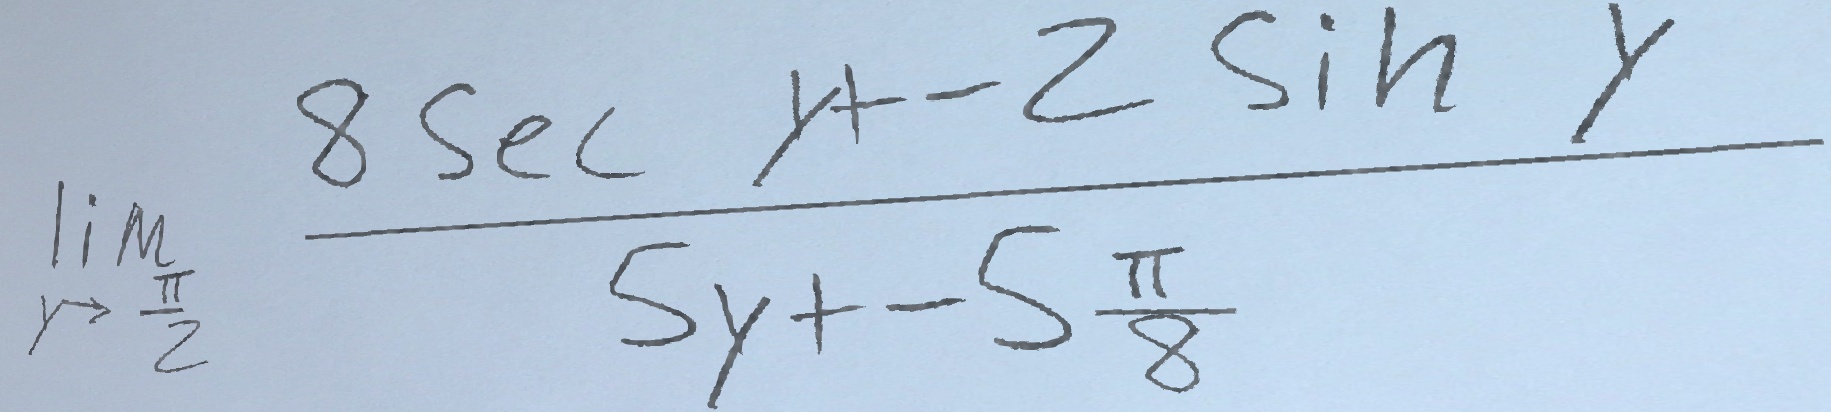 \lim_{y \to \frac{\pi}{2}} \frac{8 \sec y + -2 \sin y}{5y + -5 \frac{\pi}{8}}